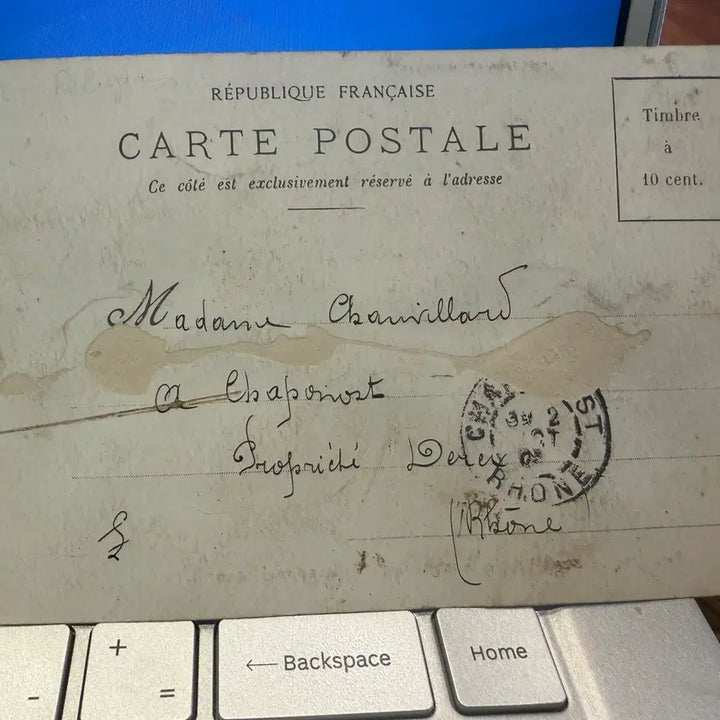 RÉPUBLIQUE FRANÇAISE
CARTE POSTALE
Ce côté est exclusivement réservé à l'adresse
Timbre
à
10 cent.
Madame Chauvillard
a Chaponost
Propriété
(Rhône)
RHONE
+
=
-
← Backspace
Home